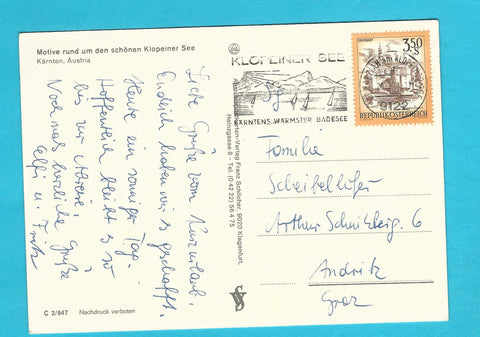 Motive rund um den schönen Klopeiner See
Kärnten, Austria
Liebe Grüße vom Kurzurlaub.
Endlich haben wir's geschafft.
Heute ein sonniger Tag.
Hoffentlich bleibt es so
bis zur Abreise.
Noch mals herzliche Grüße
Elfi u. Fritz
C 2/647 Nachdruck verboten
Kärnten-Verlag Franz Schilcher, 9020 Klagenfurt,
Tel. (0 42 22) 56 4 75
KLOPEINER SEE
KÄRNTENS WÄRMSTER BADESEE
3.50
S
9122
REPUBLIK ÖSTERREICH
Familie
Arthur Schnitzlerg. 6
Andritz
Graz